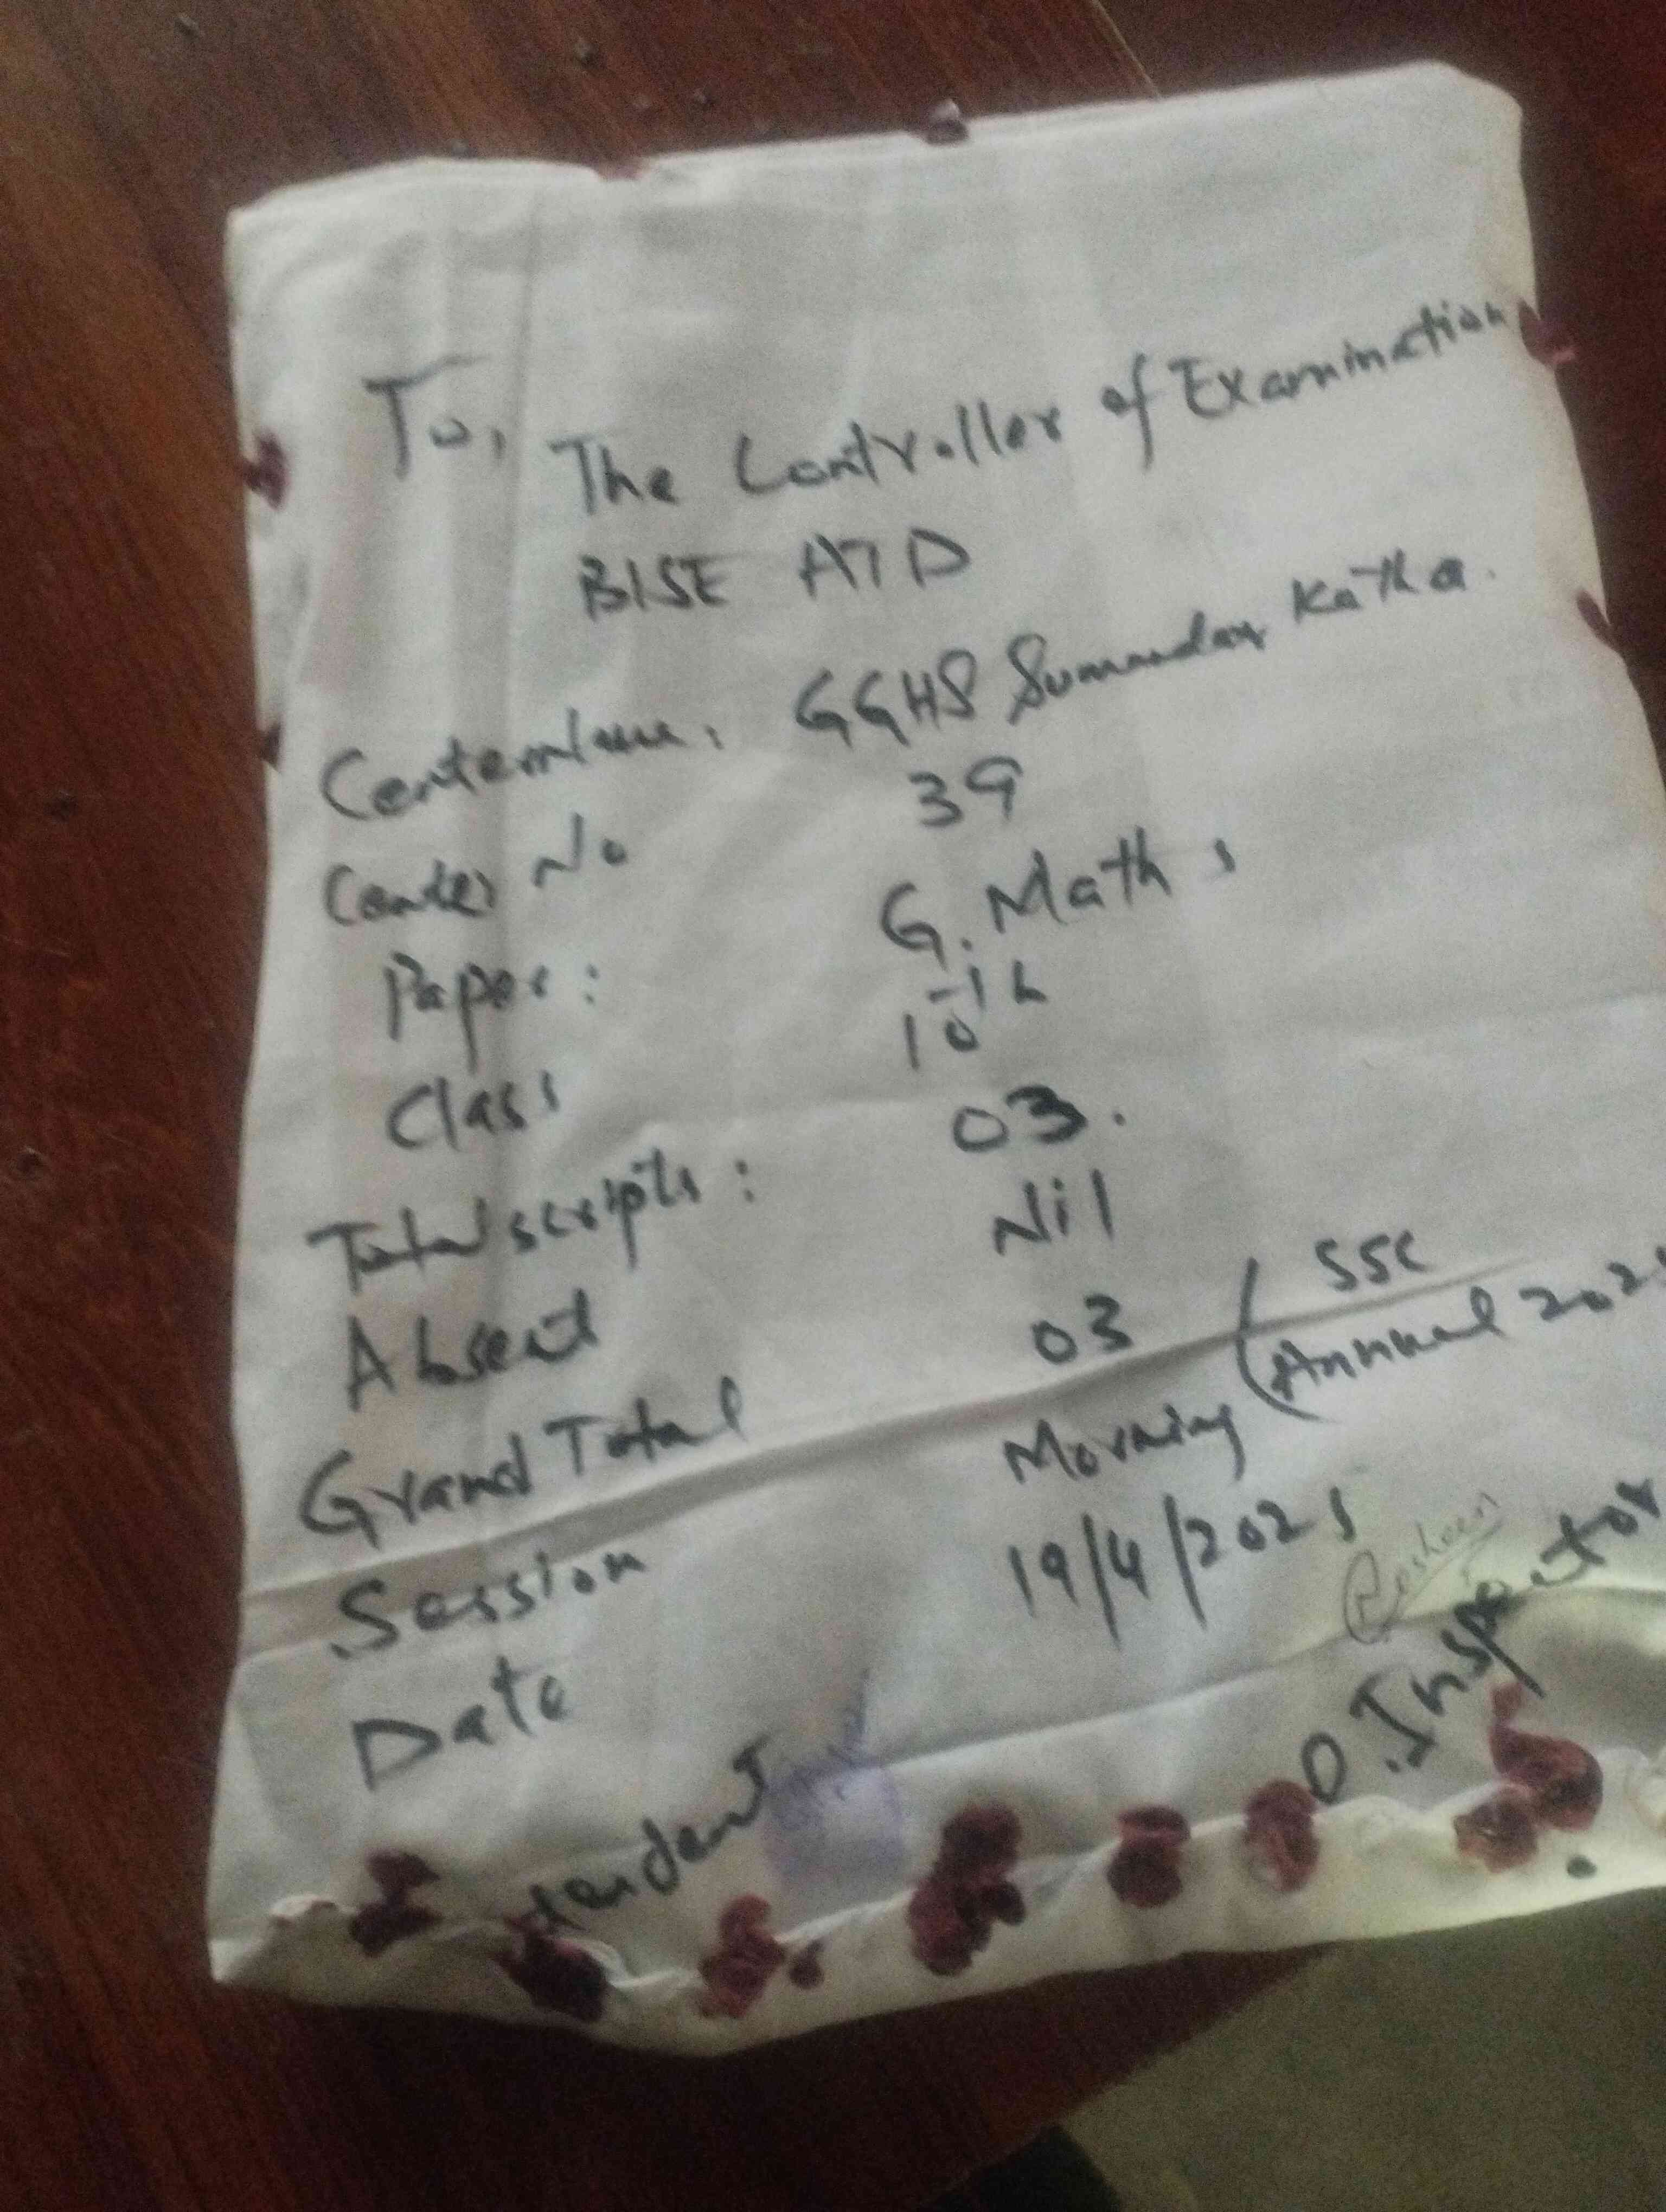 To,
The Controller of Examination
BISE ATD
Center Name: GGHS Sumandar Katha.
Center No 39
Paper: G. Maths
Class 10th
Total scripts: 03.
Absent Nil
Grand Total 03 (SSC
Annual 2025
Session Morning
Date 19/4/2025
Rosheen
tendent
D. Inspector